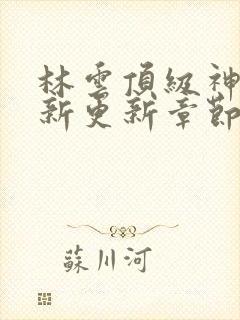 林雲頂級神
新更新章節
蘇川河